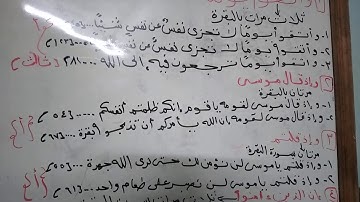 ثلاث مرات بالبقرة
١- واتقوا يومًا لا تجزى نفسٌ عن نفسٍ شيئًا
٢- واتقوا يومًا لا تجزى نفسٌ عن نفسٍ
٣- واتقوا يومًا ترجعون فيه إلى الله ... ٢٨١
وإذ قال موسى
مرتان بالبقرة
١- وإذ قال موسى لقومه يا قوم إنكم ظلمتم أنفسكم ... ٥٤
٢- وإذ قال موسى لقومه إن الله يأمركم أن تذبحوا بقرة ... ٦٧
٣ وإذ قلتم
مرتان بسورة البقرة
١- وإذ قلتم ياموسى لن نؤمن لك حتى نرى الله جهرة ... ٥٥
٢- وإذ قلتم ياموسى لن نصبر على طعام واحد ... ٦١